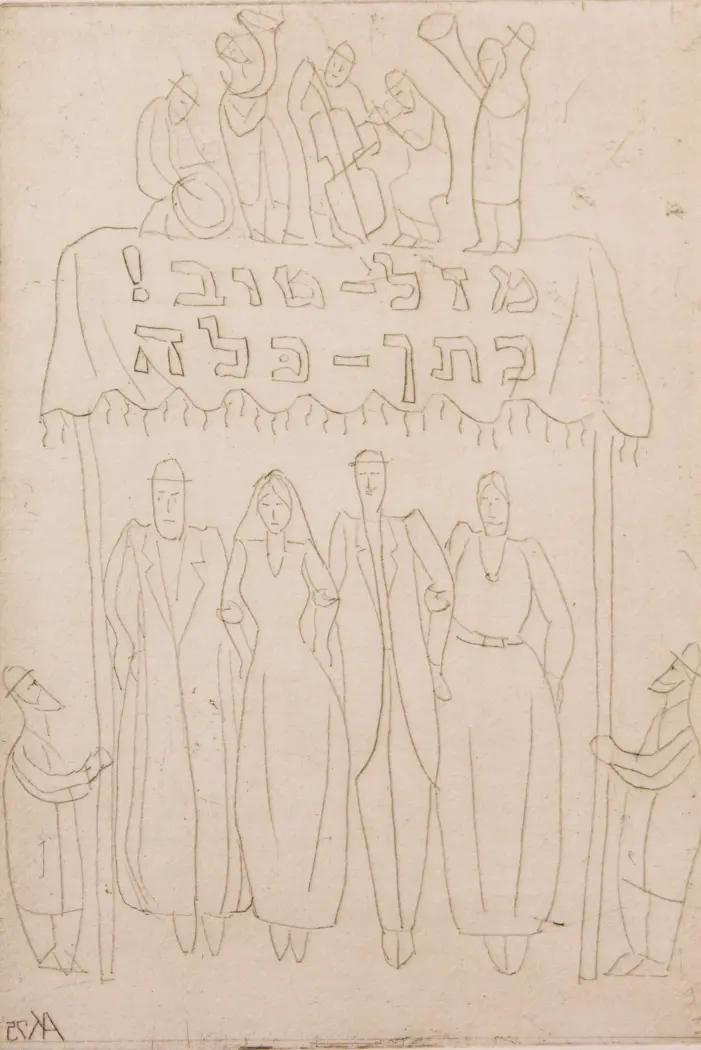 מזל-טוב!
כתן-כלה
AK 25